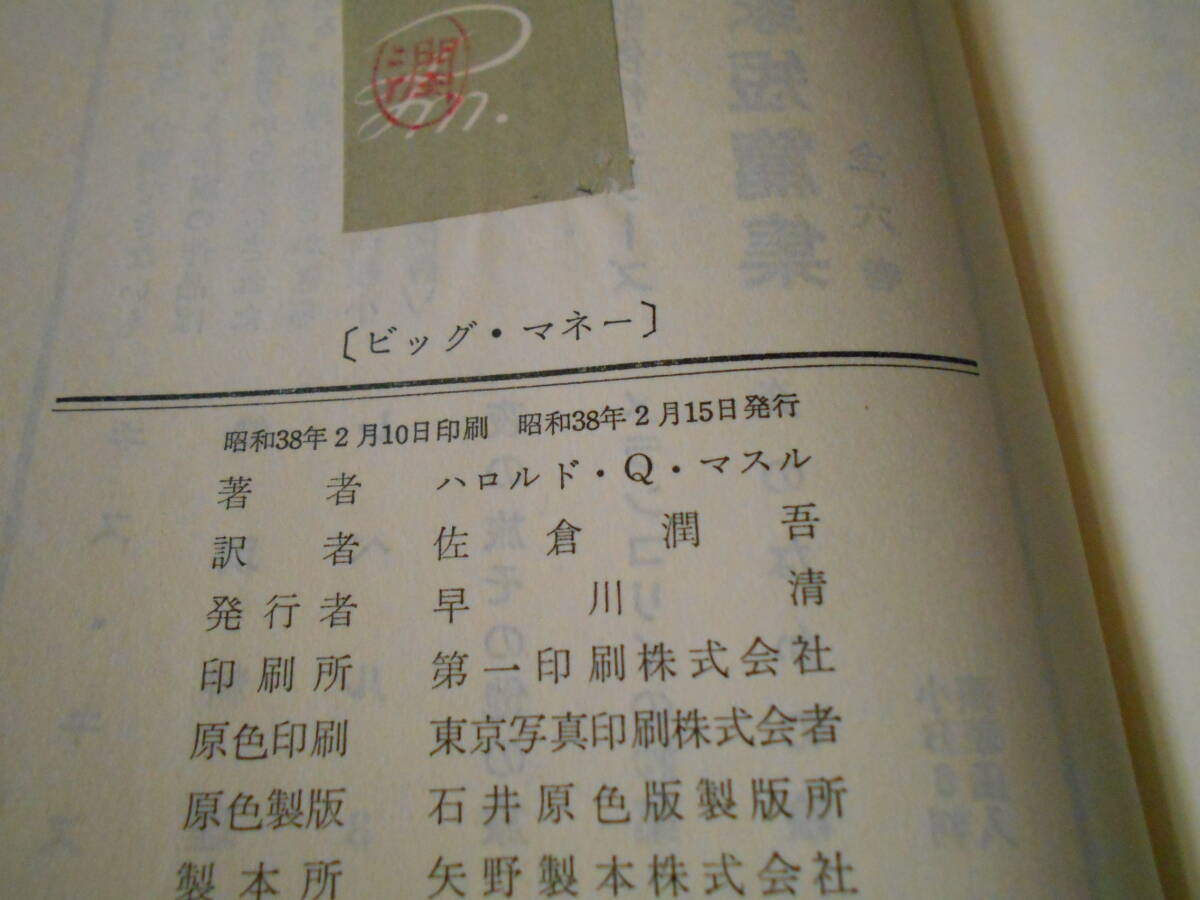 潤
〔ビッグ・マネー〕
昭和38年2月10日印刷 昭和38年2月15日発行
著者 ハロルド・Q・マスル
訳者 佐倉潤吾
発行者 早川清
印刷所 第一印刷株式会社
原色印刷 東京写真印刷株式会者
原色製版 石井原色版製版所
製本所 矢野製本株式会社